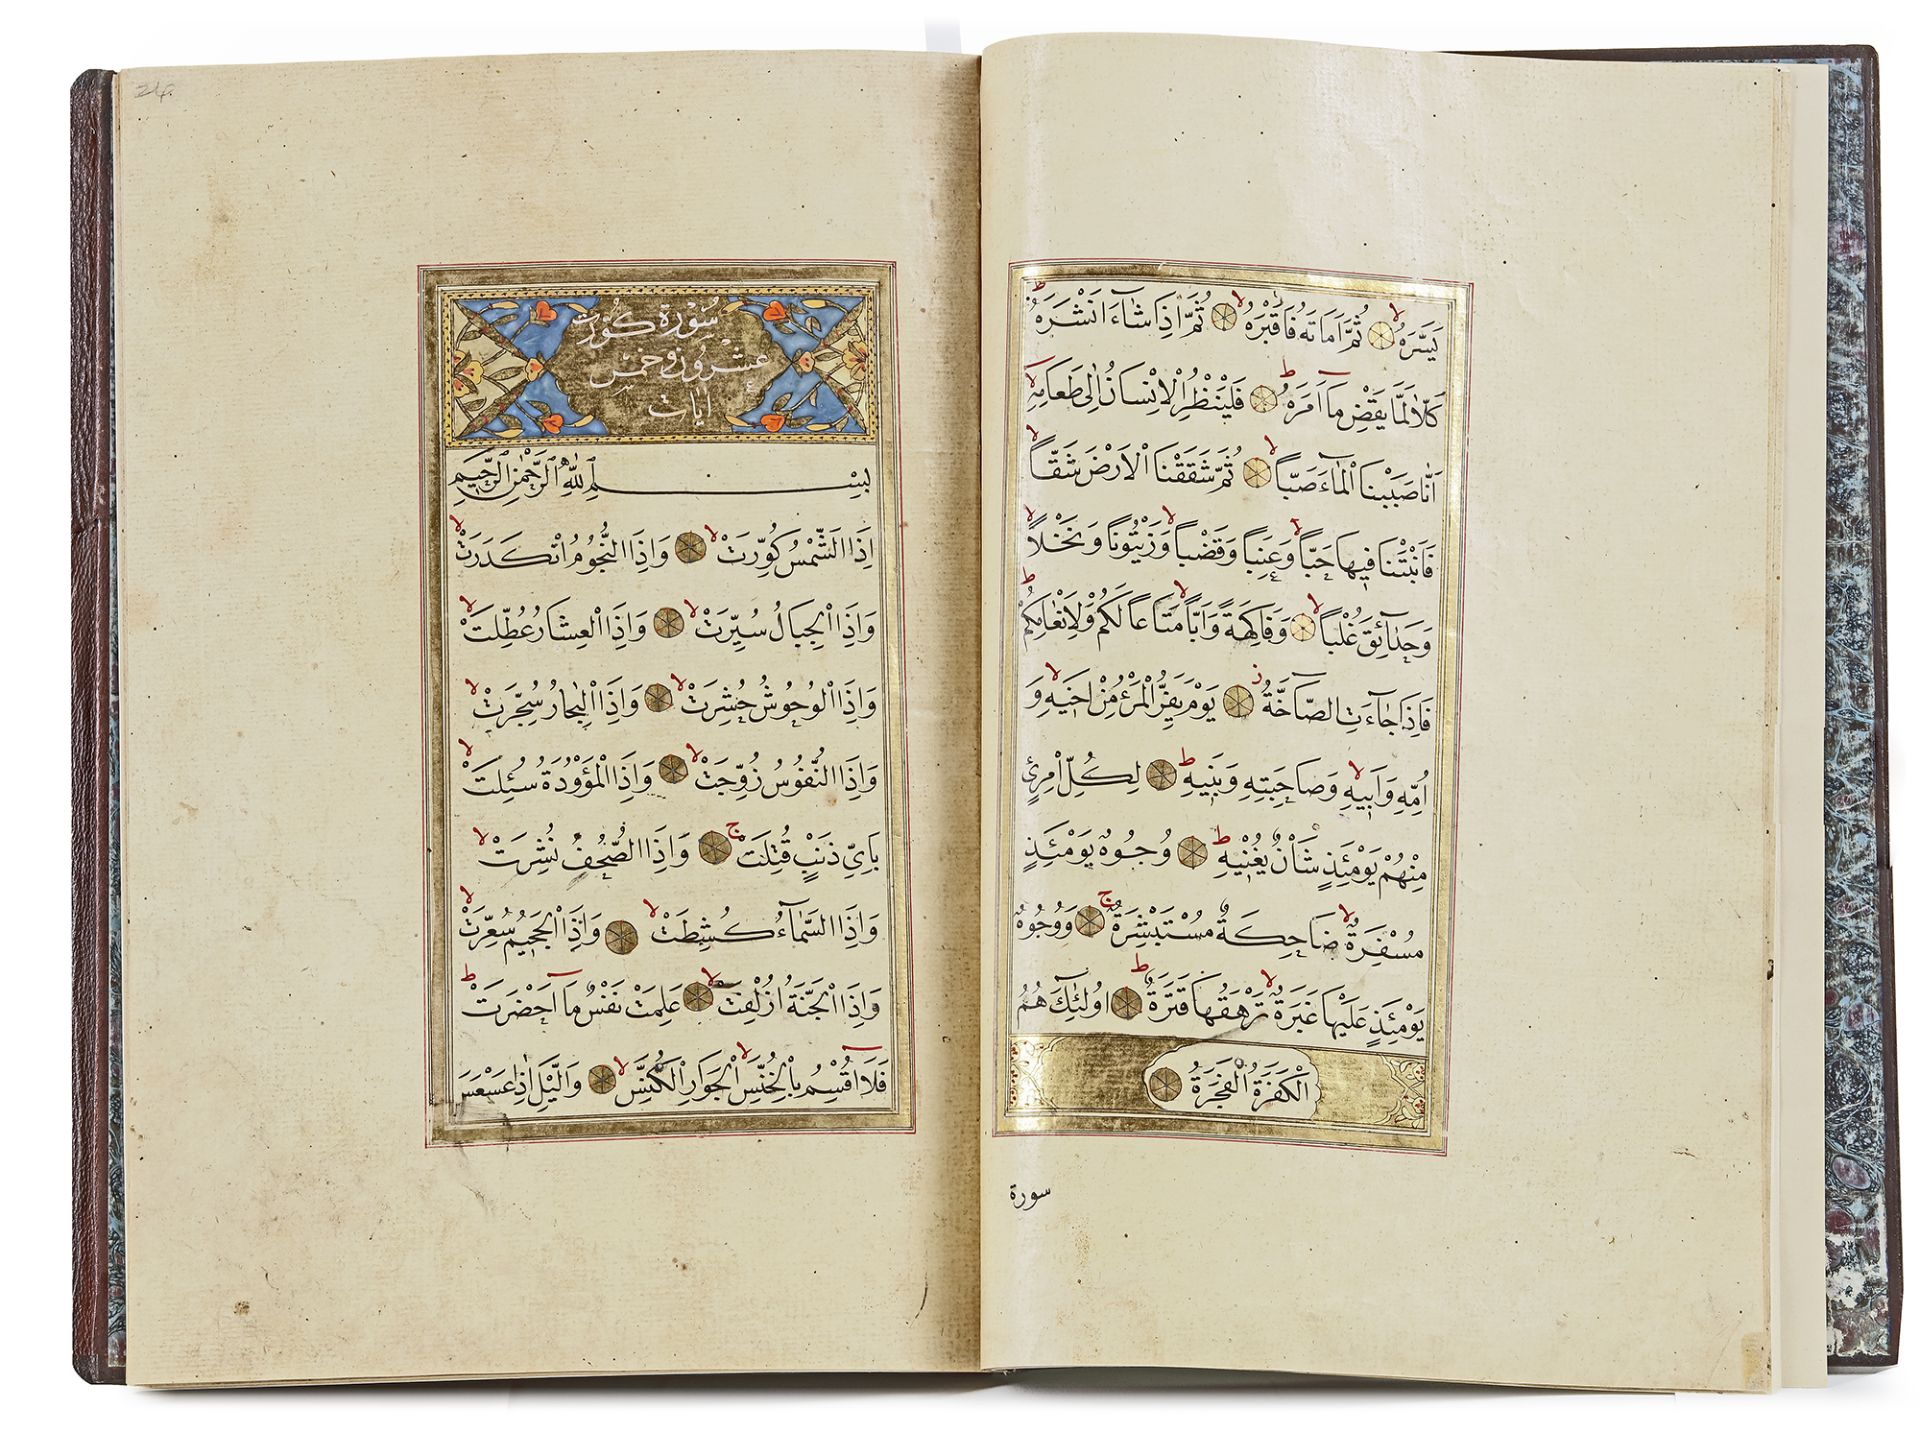 يَسَّرَهُ ثُمَّ اَمَاتَهُ فَاَقْبَرَهُ ثُمَّ اِذَا شَٓاءَ اَنْشَرَهُ
كَلَّا لَمَّا يَقْضِ مَٓا اَمَرَهُ فَلْيَنْظُرِ الْاِنْسَانُ اِلٰى طَعَامِهِ
اَنَّا صَبَبْنَا الْمَٓاءَ صَبًّا ثُمَّ شَقَقْنَا الْاَرْضَ شَقًّا
فَاَنْبَتْنَا فِيهَا حَبًّا وَعِنَبًا وَقَضْبًا وَزَيْتُونًا وَنَخْلًا
وَحَدَٓائِقَ غُلْبًا وَفَاكِهَةً وَاَبًّا مَتَاعًا لَكُمْ وَلِاَنْعَامِكُمْ
فَاِذَا جَٓاءَتِ الصَّٓاخَّةُ يَوْمَ يَفِرُّ الْمَرْءُ مِنْ اَخِيهِ وَ
اُمِّهِ وَاَبِيهِ وَصَاحِبَتِهِ وَبَنِيهِ لِكُلِّ امْرِئٍ
مِنْهُمْ يَوْمَئِذٍ شَأْنٌ يُغْنِيهِ وُجُوهٌ يَوْمَئِذٍ
مُسْفِرَةٌ ضَاحِكَةٌ مُسْتَبْشِرَةٌ وَوُجُوهٌ
يَوْمَئِذٍ عَلَيْهَا غَبَرَةٌ تَرْهَقُهَا قَتَرَةٌ اُولٰٓئِكَ هُمُ
الْكَفَرَةُ الْفَجَرَةُ
سورة
سُورَة كُوِّرَت
عِشْرُونَ وَخَمْسُ
اٰيَات
بِسْمِ اللّٰهِ الرَّحْمٰنِ الرَّحِيمِ
اِذَا الشَّمْسُ كُوِّرَتْ وَاِذَا النُّجُومُ انْكَدَرَتْ
وَاِذَا الْجِبَالُ سُيِّرَتْ وَاِذَا الْعِشَارُ عُطِّلَتْ
وَاِذَا الْوُحُوشُ حُشِرَتْ وَاِذَا الْبِحَارُ سُجِّرَتْ
وَاِذَا النُّفُوسُ زُوِّجَتْ وَاِذَا الْمَوْؤُدَةُ سُئِلَتْ
بِاَيِّ ذَنْبٍ قُتِلَتْ وَاِذَا الصُّحُفُ نُشِرَتْ
وَاِذَا السَّمَٓاءُ كُشِطَتْ وَاِذَا الْجَحِيمُ سُعِّرَتْ
وَاِذَا الْجَنَّةُ اُزْلِفَتْ عَلِمَتْ نَفْسٌ مَٓا اَحْضَرَتْ
فَلَٓا اُقْسِمُ بِالْخُنَّسِ الْجَوَارِ الْكُنَّسِ وَالَّيْلِ اِذَا عَسْعَسَ